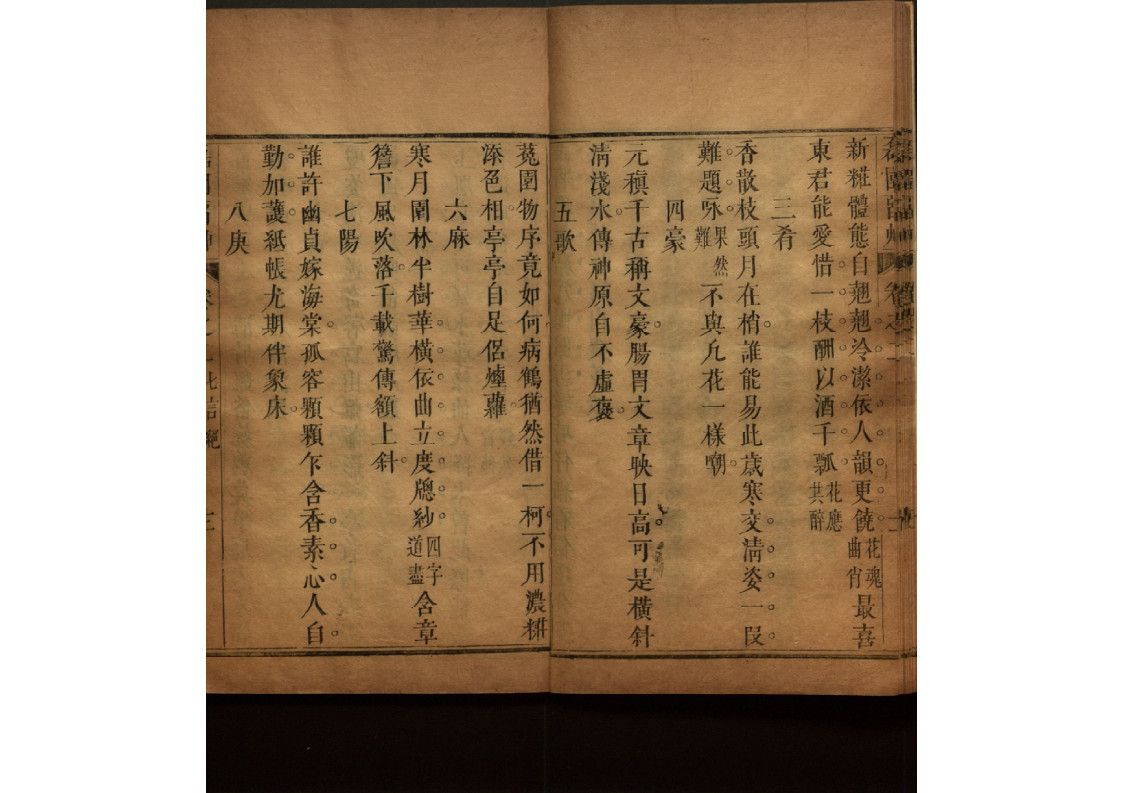 新糚體態自翹翹冷潔依人韻更饒花魂曲肖最喜
東君能愛借一枝酬以酒千瓢花應共醉
三肴
香散枝頭月在梢誰能易此歲寒交淸姿一段
難題咏果然難不與凡花一樣嘲
四豪
元稹千古稱文豪腸胃文章映日高可是橫斜
淸淺水傳神原自不虛褒
五歌
菟園物序竟如何病鶴猶然借一柯不用濃粧
添色相亭亭自足侶煙蘿
六麻
寒月園林半樹華橫依曲立度牕紗四字道盡含章
簷下風吹落千載驚傳額上斜
七陽
誰許幽貞嫁海棠孤容顆顆乍含香素心人自
勤加護紙帳尤期伴象床
八庚